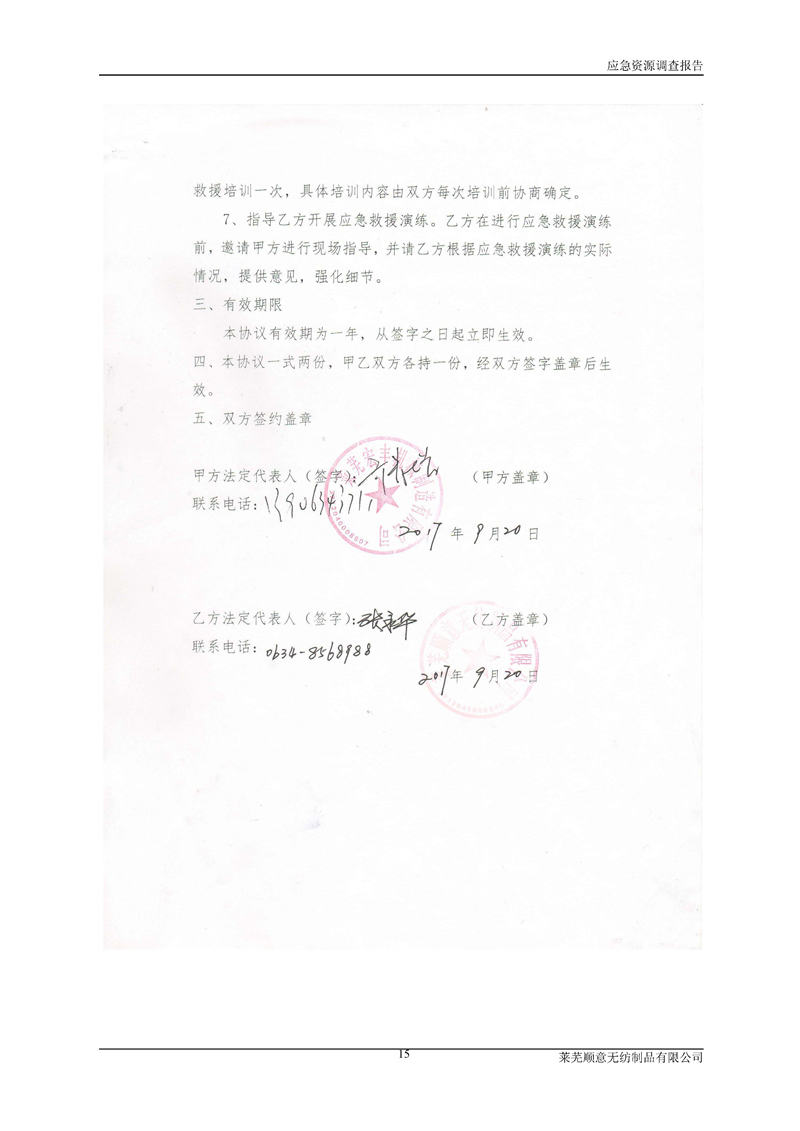 应急资源调查报告
救援培训一次，具体培训内容由双方每次培训前协商确定。
7、指导乙方开展应急救援演练。乙方在进行应急救援演练
前，邀请甲方进行现场指导，并请乙方根据应急救援演练的实际
情况，提供意见，强化细节。
三、有效期限
本协议有效期为一年，从签字之日起立即生效。
四、本协议一式两份，甲乙双方各持一份，经双方签字盖章后生
效。
五、双方签约盖章
甲方法定代表人（签字）： （甲方盖章）
联系电话：
2017 年 9 月 20 日
乙方法定代表人（签字）：张 华 （乙方盖章）
联系电话：0634-8568988
2017 年 9 月 20 日
15
莱芜顺意无纺制品有限公司